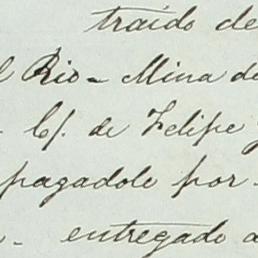 traido de
Rio - Mina de
C/. de Felipe
pagadole por
entregado a